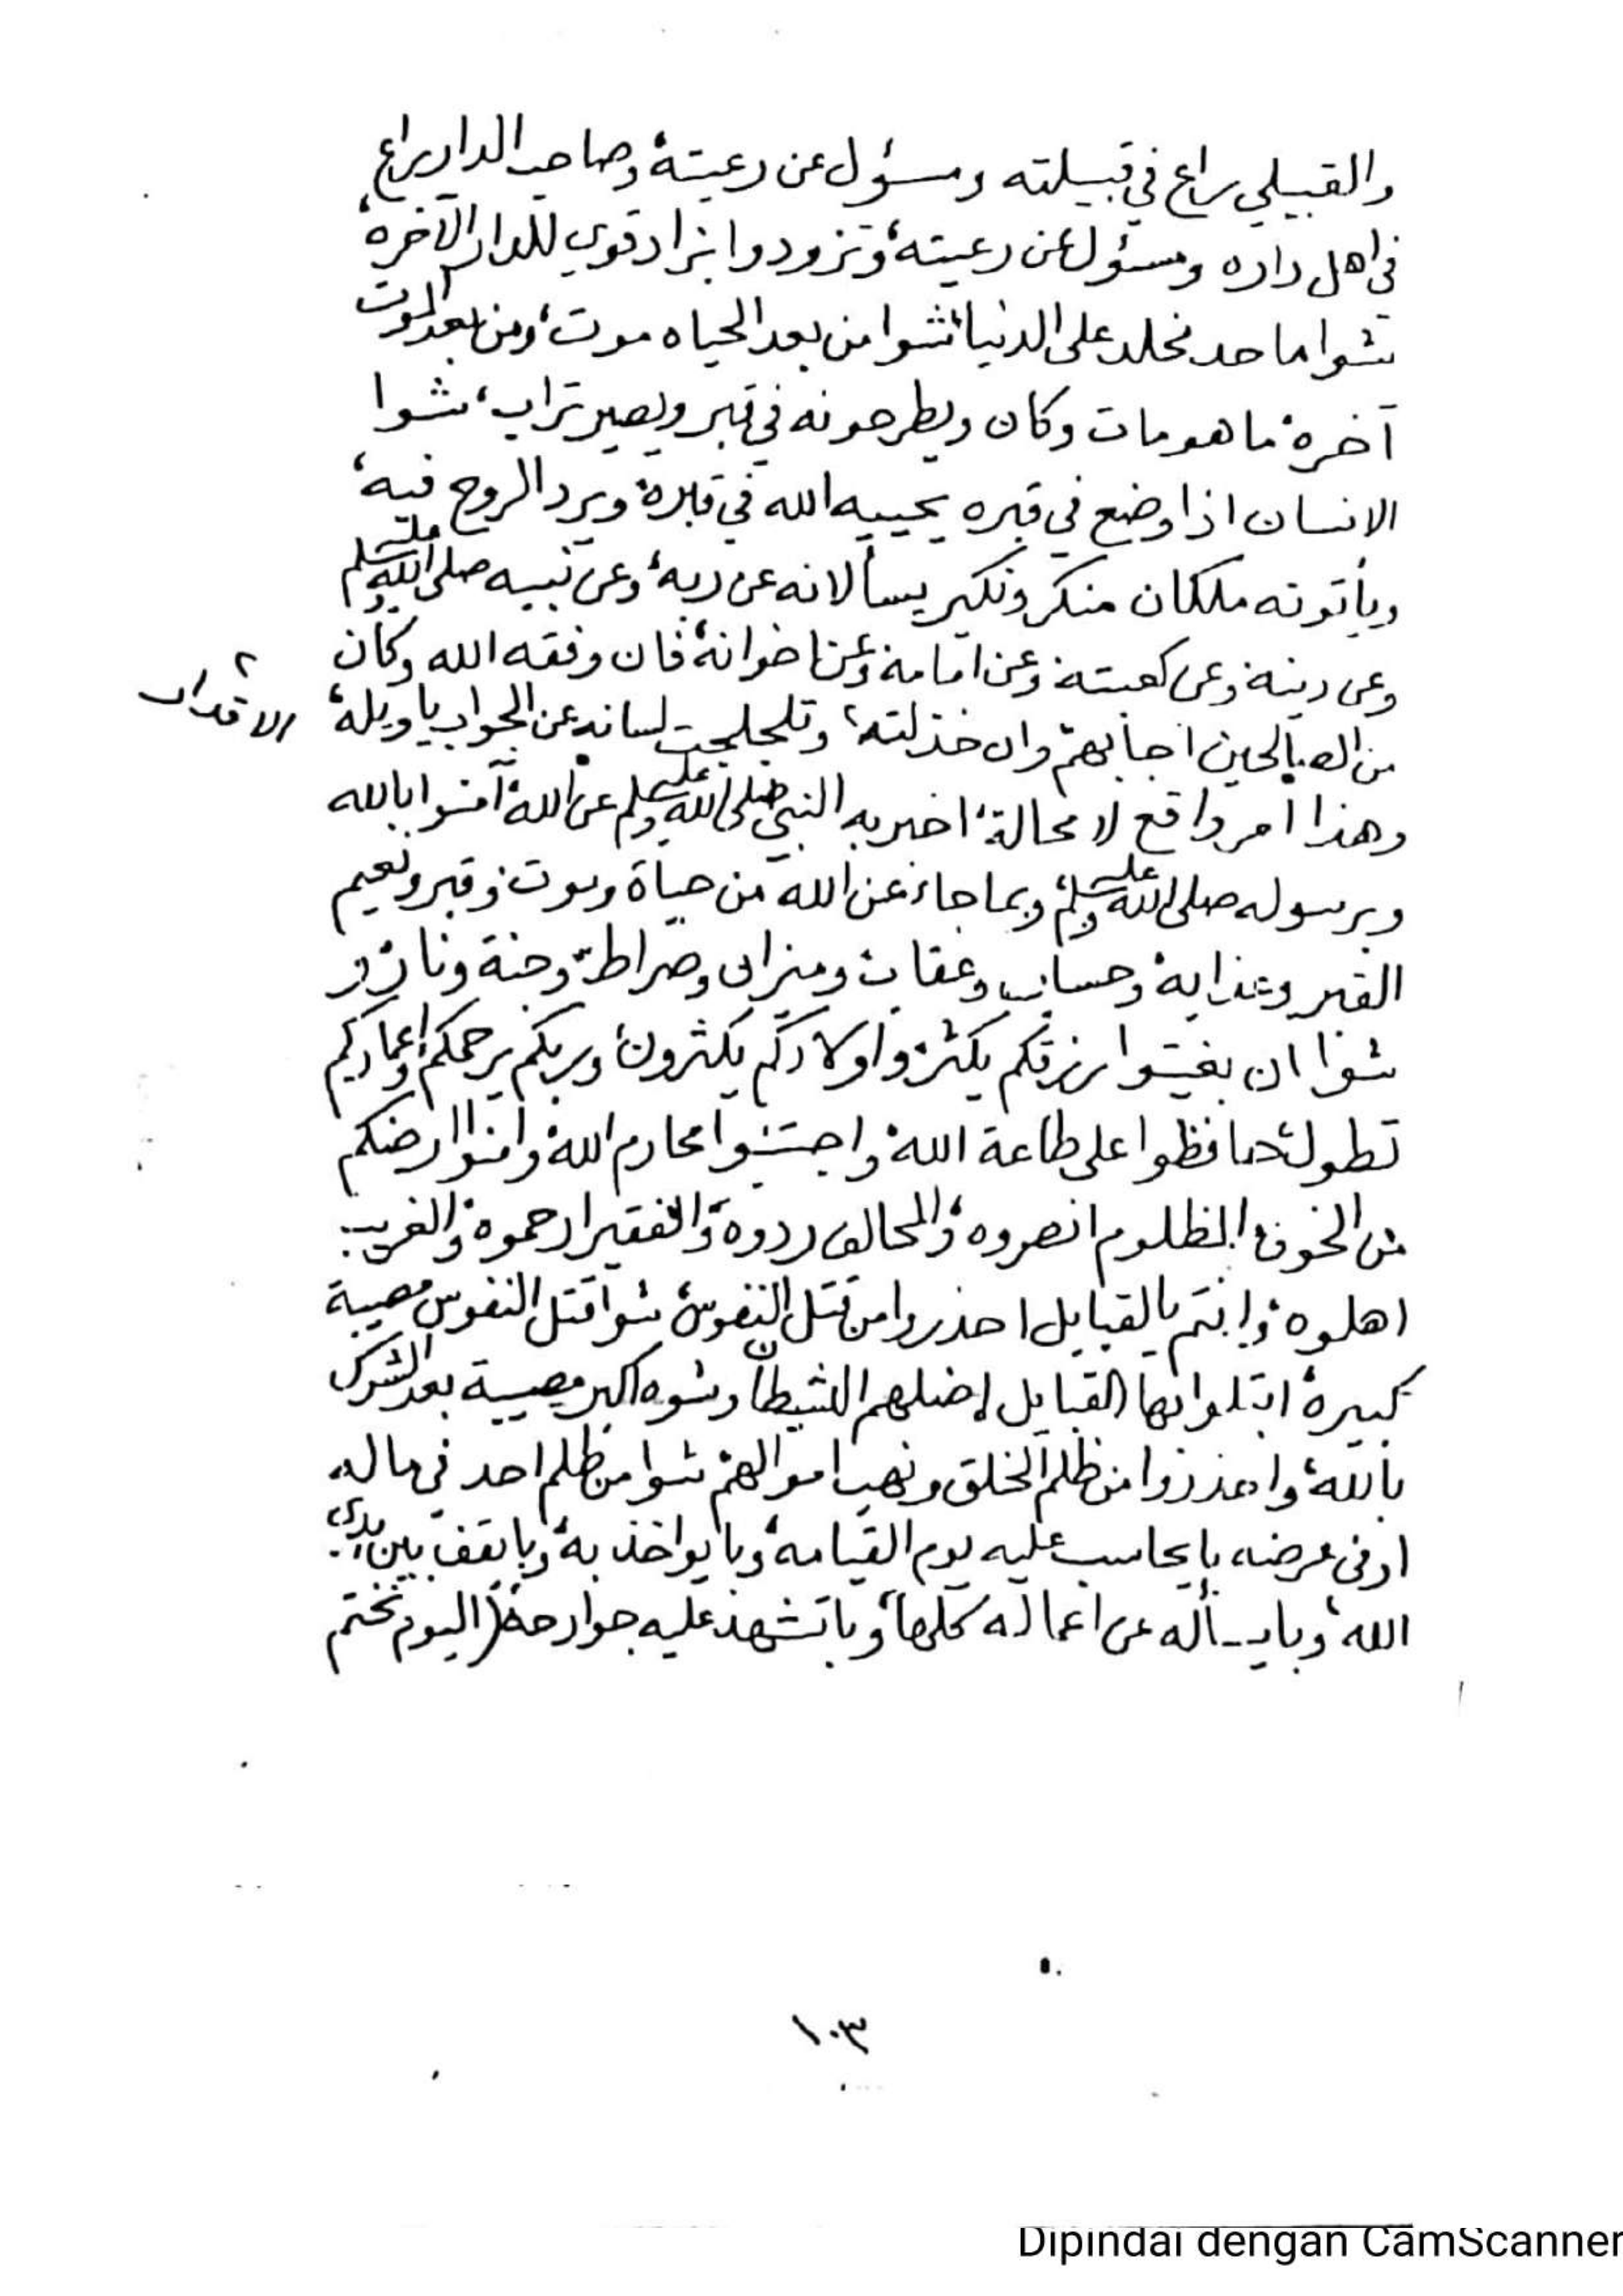 والقبيلي راع في قبيلته ومسؤل عن رعيته، وصاحب الدار راع
في اهل داره ومسؤل عن رعيته، وتزودوا بزاد قوي للدار الآخره،
شوا ما حد مخلد على الدنيا، شوا من بعد الحياه موت، ومن بعد الموت
آخره، ما هو مات وكان ويطرحونه في قبر ويصير تراب، شوا
الانسان اذا وضع في قبره يحييه الله في قبره، ويرد الروح فيه،
ويأتونه ملكان منكر ونكير يسألانه عن ربه، وعن نبيه صلى الله عليه وسلم
وعن دينه وعن كعبته وعن امامه وعن اخوانه، فان وفقه الله وكان
من الصالحين اجابهم، وان خذلته، وتلجلجت لسانه عن الجواب يا ويله،
٢ الاقدار
وهذا امر واقع لا محالة، اخبر به النبي صلى الله عليه وسلم عن الله، آمنوا بالله
وبرسوله صلى الله عليه وسلم، وبما جاء عن الله من حياة وموت، وقبر ونعيم
القبر وعذابه، وحساب وعقاب، وميزان وصراط، وجنة ونار، و
شوا ان بغيتوا رزقكم يكثر، واولادكم يكثرون، وربكم يرحمكم، واعماركم
تطول، حافظوا على طاعة الله، واجتنبوا محارم الله، وامنوا ارضكم
من الخوف، المظلوم انصروه، والمخالف ردوه، والفقير ارحموه، والغريب
اهلوه، وانتم يالقبايل احذروا من قتل النفوس، شوا قتل النفوس مصيبة
كبيرة، ابتلوا بها القبايل اضلهم الشيطان وشوه اكبر مصيبة بعد الشرك
بالله، واحذروا من ظلم الخلق ونهب اموالهم، شوا من ظلم احد في ماله
او في عرضه بايحاسب عليه يوم القيامه، وبايواخذ به، وبايقف بين يدي
الله، وبايسأله عن اعماله كلها، وباتشهد عليه جوارحه، (اليوم نختم
١٠٣
Dipindai dengan CamScanner